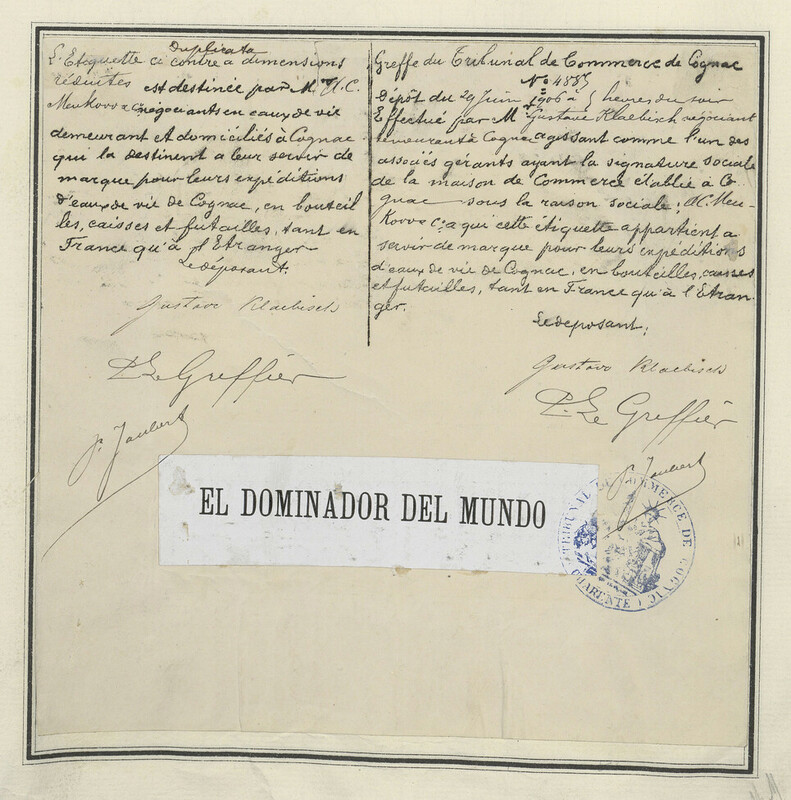 Duplicata
L'Etiquette ci contre à dimensions
réduites est destinée par M. H. C.
Meukow & C négociants en eaux de vie
demeurant et domiciliés à Cognac
qui la destinent a leur servir de
marque pour leurs expéditions
d'eaux de vie de Cognac, en bouteil
les, caisses et futailles, tant en
France qu'à l'Etranger
Le déposant.
Gustave Klaebisch
P. Le Greffier
P. Joubert
Greffe du Tribunal de Commerce de Cognac
No 4885
Dépôt du 29 Juin 1906 à 5 heures du soir
Effectué par M Gustave Klaebisch négociant
demeurant à Cognac agissant comme l'un des
associés gérants ayant la signature sociale
de la maison de Commerce établie à Co
gnac sous la raison sociale: A. C. Meu-
kow & Cie a qui cette étiquette appartient a
servir de marque pour leurs expéditions
d'eaux de vie de Cognac, en bouteilles, caisses
et futailles, tant en France qu'à l'Etran-
ger.
Le déposant,
Gustave Klaebisch
P. Le Greffier
P. Joubert
EL DOMINADOR DEL MUNDO
TRIBUNAL DE COMMERCE DE COGNAC
(CHARENTE)